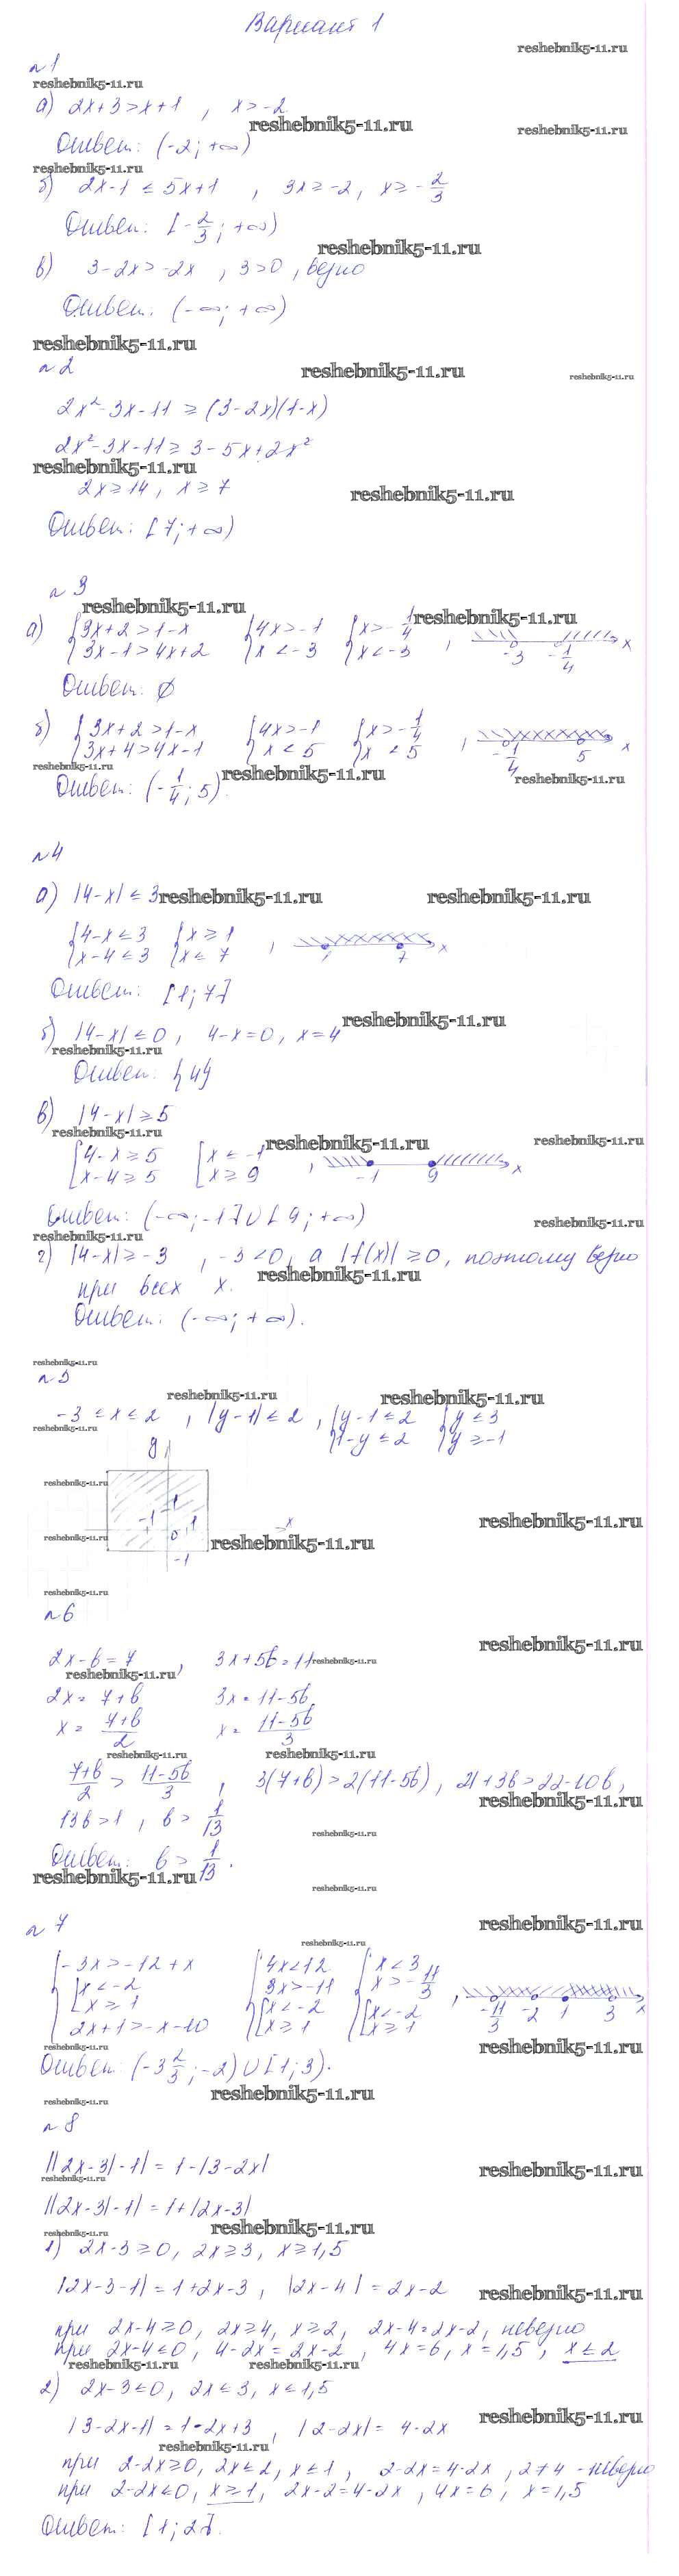 Вариант 1
reshebnik5-11.ru
№1
reshebnik5-11.ru
а) 2x+3>x+1 , x>-2
reshebnik5-11.ru
reshebnik5-11.ru
Ответ: (-2; +∞)
reshebnik5-11.ru
б) 2x-1 ≤ 5x+1 , 3x ≥ -2, x ≥ -2/3
Ответ: [-2/3; +∞)
reshebnik5-11.ru
в) 3-2x>-2x , 3>0, верно
Ответ: (-∞; +∞)
reshebnik5-11.ru
№2
reshebnik5-11.ru
reshebnik5-11.ru
2x²-3x-11 ≥ (3-2x)(1-x)
2x²-3x-11 ≥ 3-5x+2x²
reshebnik5-11.ru
2x ≥ 14, x ≥ 7
reshebnik5-11.ru
Ответ: [7; +∞)
№3
reshebnik5-11.ru
reshebnik5-11.ru
а) {3x+2>1-x {4x>-1 {x>-1/4
{3x-1>4x+2 {x<-3 {x<-3 , -3 -1/4 x
Ответ: ∅
б) {3x+2>1-x {4x>-1 {x>-1/4
{3x+4>4x-1 {x<5 {x<5 , -1/4 5 x
reshebnik5-11.ru
reshebnik5-11.ru
reshebnik5-11.ru
Ответ: (-1/4; 5).
№4
а) |4-x| ≤ 3
reshebnik5-11.ru
reshebnik5-11.ru
{4-x ≤ 3 {x ≥ 1
{x-4 ≤ 3 {x ≤ 7 , 1 7 x
Ответ: [1; 7]
reshebnik5-11.ru
б) |4-x| ≤ 0, 4-x=0, x=4
reshebnik5-11.ru
Ответ: {4}
в) |4-x| ≥ 5
reshebnik5-11.ru
reshebnik5-11.ru
reshebnik5-11.ru
[4-x ≥ 5 [x ≤ -1
[x-4 ≥ 5 [x ≥ 9 , -1 9 x
Ответ: (-∞; -1] ∪ [9; +∞)
reshebnik5-11.ru
reshebnik5-11.ru
г) |4-x| ≥ -3 , -3<0, а |f(x)| ≥ 0, поэтому верно
reshebnik5-11.ru
при всех x.
Ответ: (-∞; +∞).
reshebnik5-11.ru
№5
reshebnik5-11.ru
reshebnik5-11.ru
-3 ≤ x ≤ 2 , |y-1| ≤ 2 , {y-1 ≤ 2 {y ≤ 3
reshebnik5-11.ru
{1-y ≤ 2 {y ≥ -1
y
reshebnik5-11.ru
1
reshebnik5-11.ru
-1 1 x
reshebnik5-11.ru
0
reshebnik5-11.ru
-1
reshebnik5-11.ru
№6
reshebnik5-11.ru
2x-b=7 , 3x+5b=11
reshebnik5-11.ru
reshebnik5-11.ru
2x=7+b 3x=11-5b
x=(7+b)/2 x=(11-5b)/3
reshebnik5-11.ru
reshebnik5-11.ru
(7+b)/2 > (11-5b)/3 , 3(7+b)>2(11-5b), 21+3b>22-10b,
reshebnik5-11.ru
13b>1, b>1/13
reshebnik5-11.ru
Ответ: b>1/13.
reshebnik5-11.ru
reshebnik5-11.ru
№7
reshebnik5-11.ru
reshebnik5-11.ru
{-3x>-12+x {4x<12 {x<3
{[x<-2 {3x>-11 {x>-11/3
{[x ≥ 1 {[x<-2 {[x<-2
{2x+1>-x-10 {[x ≥ 1 {[x ≥ 1 , -11/3 -2 1 3 x
reshebnik5-11.ru
reshebnik5-11.ru
Ответ: (-3 2/3; -2) ∪ [1; 3).
reshebnik5-11.ru
reshebnik5-11.ru
№8
||2x-3|-1| = 1-|3-2x|
reshebnik5-11.ru
reshebnik5-11.ru
||2x-3|-1| = 1+|2x-3|
reshebnik5-11.ru
reshebnik5-11.ru
1) 2x-3 ≥ 0, 2x ≥ 3, x ≥ 1,5
|2x-3-1| = 1+2x-3 , |2x-4| = 2x-2
reshebnik5-11.ru
при 2x-4 ≥ 0, 2x ≥ 4, x ≥ 2, 2x-4=2x-2, неверно
при 2x-4 ≤ 0, 4-2x=2x-2, 4x=6, x=1,5, x ≤ 2
reshebnik5-11.ru
reshebnik5-11.ru
2) 2x-3 ≤ 0, 2x ≤ 3, x ≤ 1,5
reshebnik5-11.ru
|3-2x-1| = 1-2x+3 , |2-2x| = 4-2x
reshebnik5-11.ru
при 2-2x ≥ 0, 2x ≤ 2, x ≤ 1, 2-2x=4-2x, 2≠4 - неверно
при 2-2x ≤ 0, x ≥ 1, 2x-2=4-2x, 4x=6, x=1,5
Ответ: [1; 2].